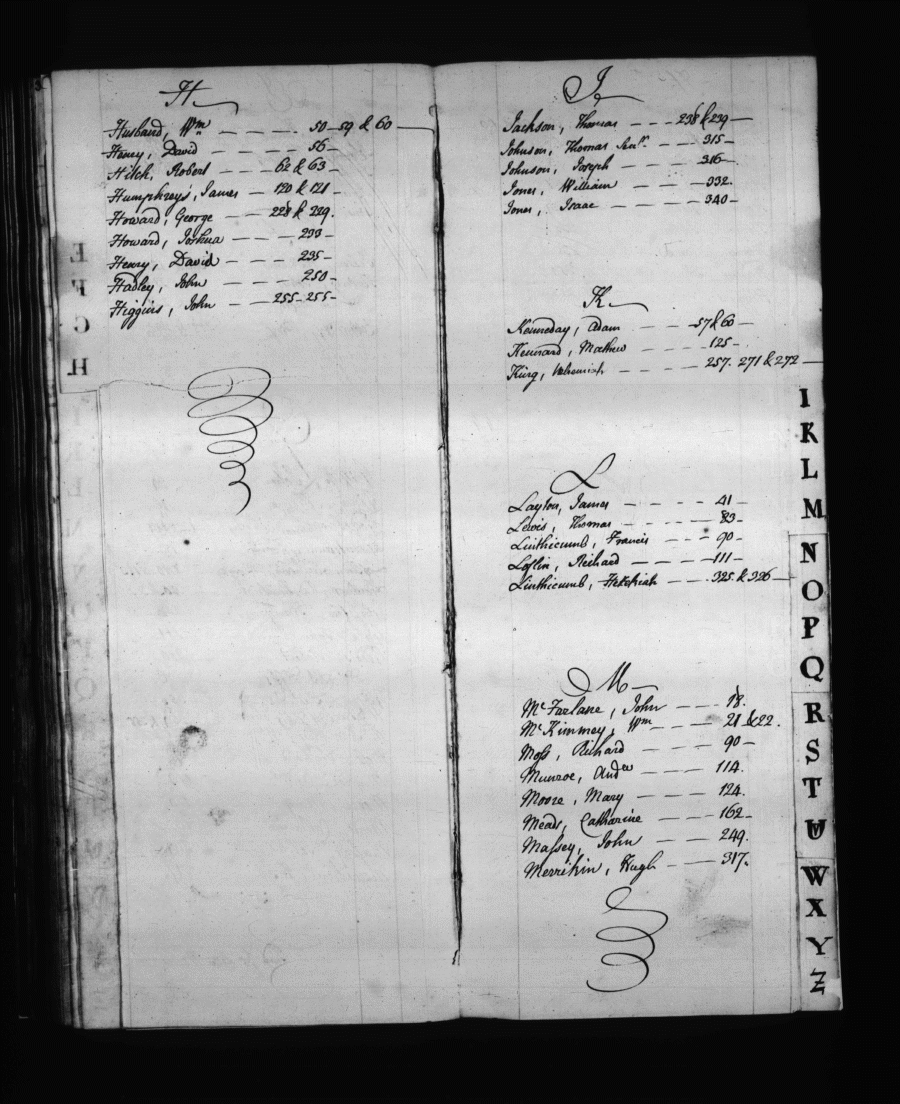 H
Husband, Wm — — — 50-59 & 60 —
Haney, David — — — 56 —
Hitch, Robert — — 62 & 63 —
Humphreys, James — 120 & 121
Howard, George — — 228 & 229.
Howard, Joshua — — — 293 —
Henry, David — — — 295 —
Hadley, John — — — 250 —
Higgins, John — — 255-255 —
J
Jackson, Thomas — — 238 & 239 —
Johnson, Thomas Senr. — — 315 —
Johnson, Joseph — — — 316 —
Jones, William — — — 332.
Jones, Isaac — — — 340 —
K
Kenneday, Adam — — — 57 & 60 —
Kennard, Mathew — — — 125 —
King, — — — 257. 271 & 272 —
L
Layton, James — — — 41 —
Lewis, Thomas — — — 83 —
Linthicumb, Francis — — 90 —
Loflin, Richard — — — 111 —
Linthicumb, Hezekiah — — 325 & 326 —
M
McFarlane, John — — 18.
McKimmey, Wm — — — 21 & 22.
Moss, Richard — — — 90 —
Munroe, Andw — — — 114.
Moore, Mary — — — 124.
Meads, Catharine — — 162 —
Massey, John — — — 249.
Merrikin, Hugh — — — 317.
I
K
L
M
N
O
P
Q
R
S
T
W
X
Y
Z